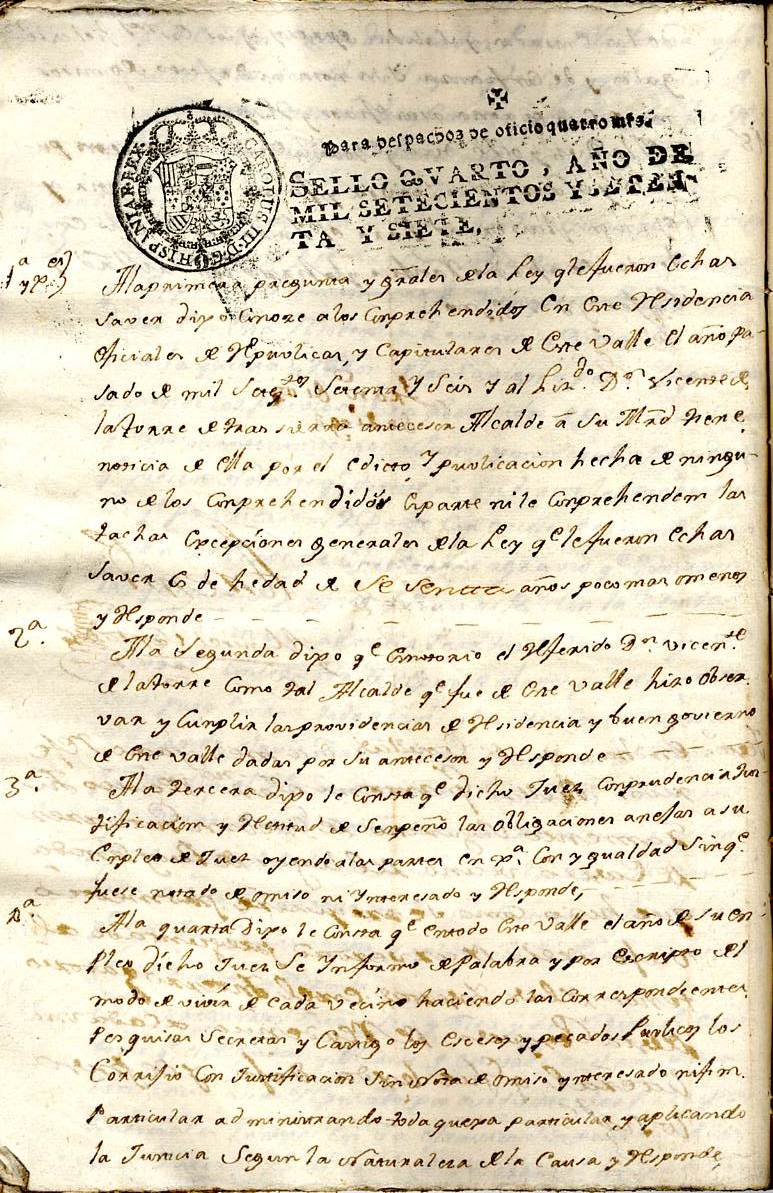 CAROLUS III D G HISPANIAR REX
Para despachos de oficio quatro mrs.
SELLO QVARTO, AÑO DE
MIL SETECIENTOS Y SETEN-
TA Y SIETE.
1ª
Ala primera pregunta y grãles de la Ley qe le fueron echas
saver dijo Conoze a los Conprehendidos En Este Residencia
oficiales de Republicas, y Capitulares de Este Valle El año pa-
sado de mil Setetos Setenta y Seis y al Lizdo Dn Vicente de
la torre de tras sierra antecesor Alcalde â Su Mrd tiene
noticia de Ella por el edicto y puvlicacion hecha de ningu-
no de los Conprehendidos Es parte ni le Conprehendem las
tachas Excepciones generales de la Ley qe le fueron echas
saver Es de hedad de Sesentta años poco mas o menos
y Responde
2ª
Ala Segunda dijo qe Es notorio el Referido Dn Vicente
de la torre Como tal Alcalde qe fue de Este Valle hizo obser-
var y Cunplir las providencias de Residencia y buen govierno
de Este Valle dadas por Su antecesor y Responde
3ª
Ala tercera dijo le Consta qe dicho Juez Conprudencia Jus-
tificacion y Rectitud desenpeño las obligaciones anejas a su
Enpleo de Juez oyendo alas partes en Jª Con ygualdad Sin qe
fuese notado de omiso ni Interesado y Responde,
4ª
Ala quarta Dijo le Consta qe en todo Este Valle el año de Su En-
pleo dicho Juez Se Informo de Palabra y por Escripto del
modo de vivir de Cada vecino haciendo las Correspondeentes
Pesquisas Secretas y Castigo los Escesos y pecados Puvlicos los
Corrijio Con Justificacion Sin Nota de omiso ynteresado ni fin
Particular administrando toda quexa particular y aplicando
la Justicia Segun la Naturaleza de la Causa y Responde,